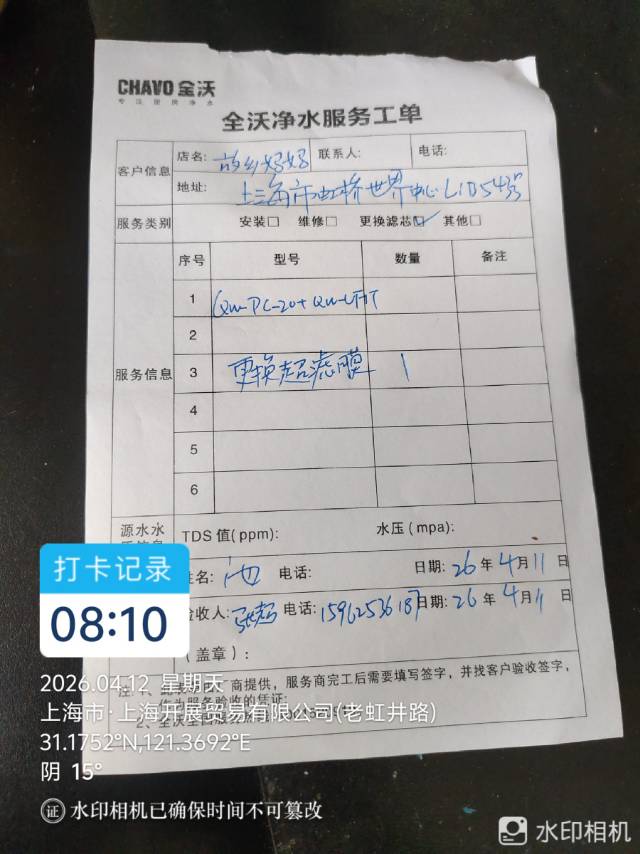 CHAVO 全沃
专注厨房净水
全沃净水服务工单
客户信息 店名: 故乡妈妈 联系人: 电话:
地址: 上海市虹桥世界中心L1D54号
服务类别 安装□ 维修□ 更换滤芯☑ 其他□
服务信息 序号 型号 数量 备注
1 QW-PC-20+QW-UF1T
2
3 更换超滤膜 1
4
5
6
源水水 TDS 值(ppm): 水压 (mpa):
姓名: 池 电话: 日期: 26 年 4 月 11 日
验收人: 张超 电话: 15962536187 日期: 26 年 4 月 11 日
(盖章):
厂商提供，服务商完工后需要填写签字，并找客户验收签字，
作为服务验收的凭证;
打卡记录
08:10
2026.04.12 星期天
上海市·上海开展贸易有限公司(老虹井路)
31.1752°N,121.3692°E
阴 15°
证 水印相机已确保时间不可篡改
水印相机